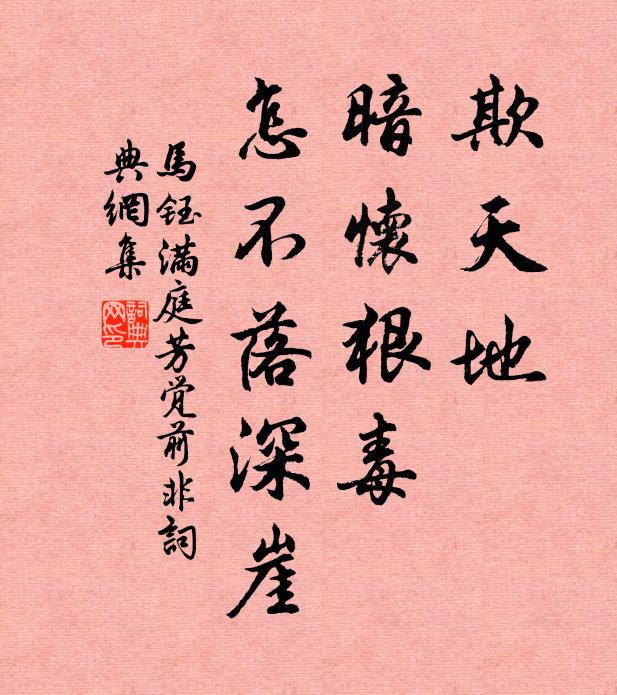 欺天地
暗懷狠毒
怎不落深崖
馬鈺滿庭芳覚前非詞
典網集
詞典
网印